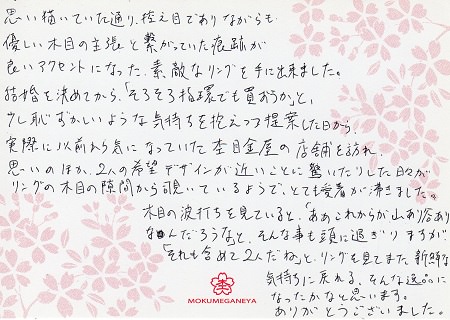 思い描いていた通り、控え目でありながらも
優しい木目の主張と繋がっていた痕跡が
良いアクセントになった、素敵なリングを手に出来ました。
結婚を決めてから、「そろそろ指環でも買おうか」と、
少し恥ずかしいような気持ちを抱えつつ提案した日から、
実際に以前から気になっていた杢目金屋の店舗を訪れ、
思いのほか、2人の希望デザインが近いことに驚いたりした日々が
リングの木目の隙間から覗いているようで、とても愛着が沸きました。
木目の波打ちを見ていると、「ああこれからが山あり谷あり
なんだろうな」と、そんな事も頭に過ぎりますが
「それも含めて2人だね」と、リングを見てまた新鮮な
気持ちに戻れる、そんな逸品に
なったかなと思います。
ありがとうございました。
MOKUMEGANEYA